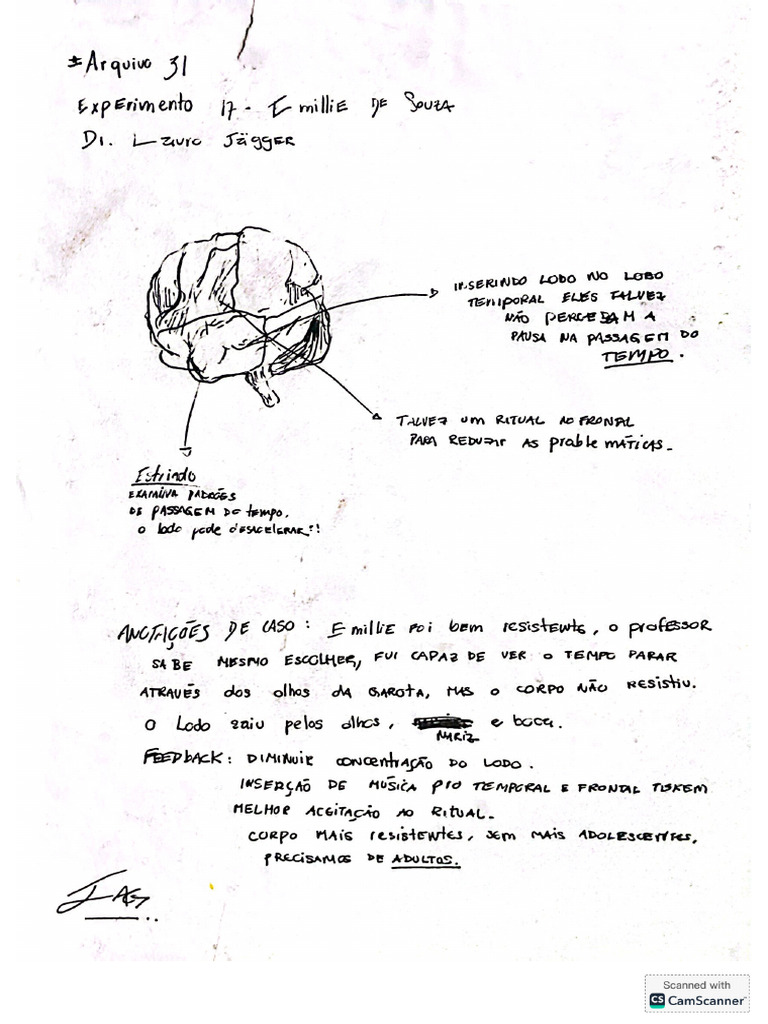 *Arquivo 31
Experimento 17 - Emillie de Souza
Dr. Lauro Jägger
INSERINDO LODO NO LOBO
TEMPORAL ELES TALVEZ
NÃO PERCEBAM A
PAUSA NA PASSAGEM DO
TEMPO.
TALVEZ UM RITUAL NO FRONTAL
PARA REDUZIR AS problemáticas.
EXAMINA PADRÕES
DE PASSAGEM DO tempo.
o lodo pode DESACELERAR?!
ANOTAÇÕES DE CASO: Emillie foi bem resistente, o professor
SABE MESMO ESCOLHER, FUI CAPAZ DE VER O TEMPO PARAR
ATRAVÉS dos olhos DA GAROTA, MAS O CORPO NÃO RESISTIU.
O Lodo saiu pelos olhos, e boca.
NARIZ
FEEDBACK: DIMINUIR CONCENTRAÇÃO DO LODO.
INSERÇÃO DE MÚSICA p/o TEMPORAL E FRONTAL TEREM
MELHOR ACEITAÇÃO AO RITUAL.
CORPO MAIS resistentes, SEM MAIS ADOLESCENTES,
PRECISAMOS DE ADULTOS.
JAG
Scanned with
CS CamScanner